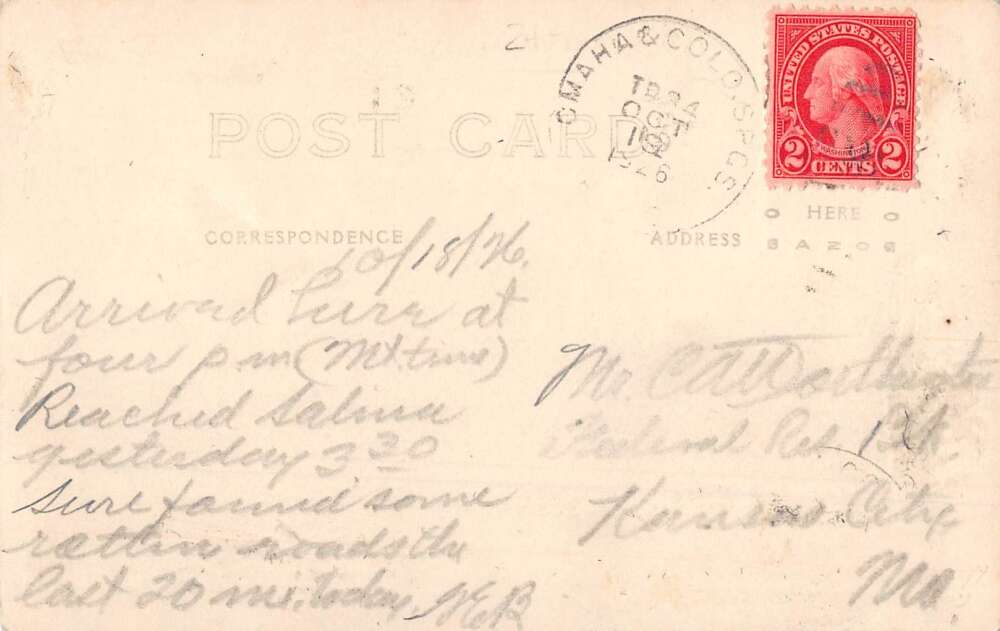 OMAHA & COLO. SPGS.
TR 24
OCT
18
1926
UNITED STATES POSTAGE
WASHINGTON
2 CENTS 2
POST CARD
HERE
CORRESPONDENCE
ADDRESS
10/18/26.
Arrived here at
four p m (Mt. time)
Reached Salina
yesterday 3 30
Sure found some
rotten roads the
last 20 mi. today.
Mr. C A
Federal Res. Bk.
Kansas City
Mo.